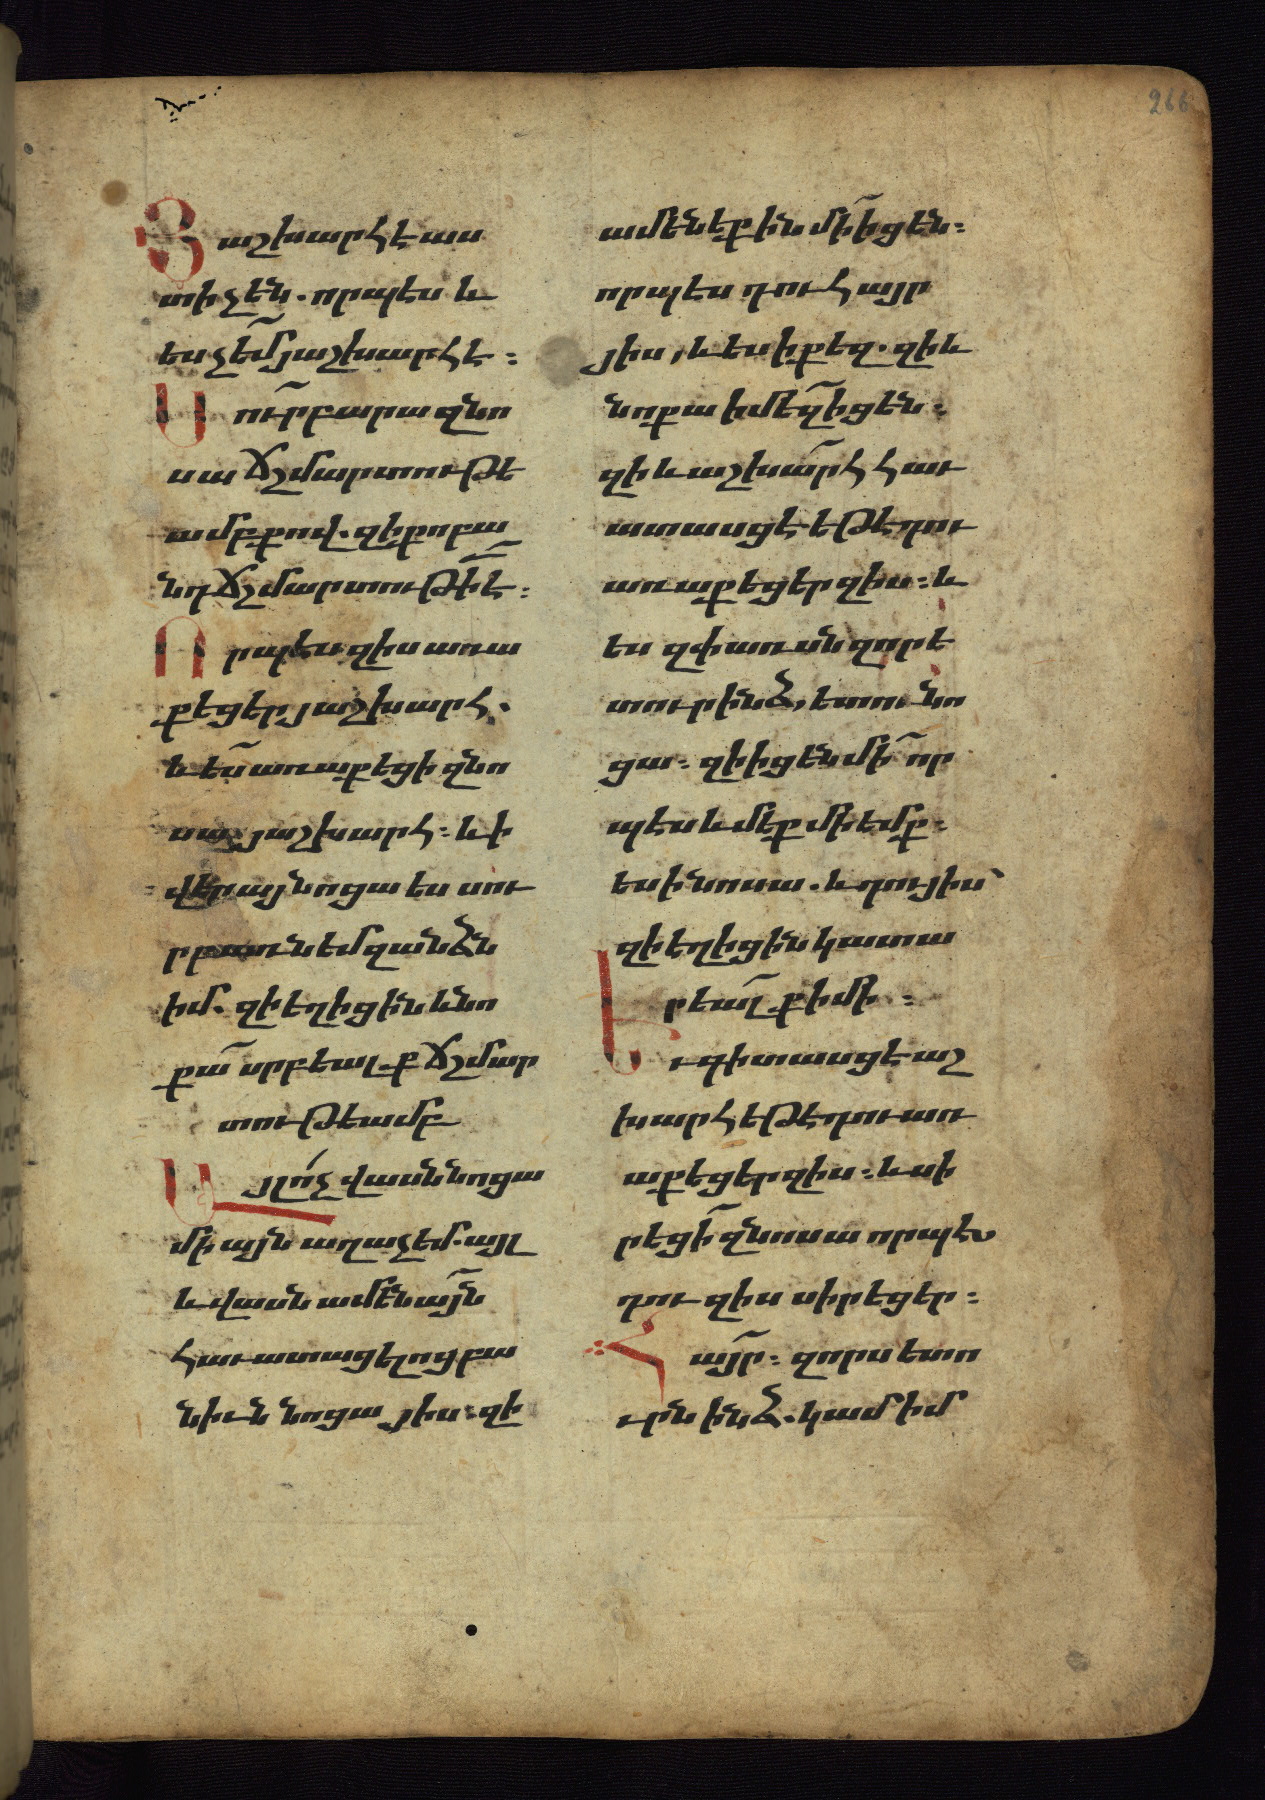 266
Յաշխարհէ աս
տի չեն. որպես և
ես չեմ յաշխարհէ։
Սուրբ արա զնո
սա ճշմարտութե
ամբ քով. զի քո բա
նդ ճշմարտութի է։
Որպէս զիս առա
քեցեր յաշխարհ.
և ես առաքեցի զնո
սա յաշխարհ։ և ի
վերայ նոցա ես սու
րբ առնեմ զանձն
իմ. զի եղիցին և նո
քա սրբեալք ճշմար
տութեամբ
Այլ ոչ վասն նոցա
միայն աղաչեմ. այլ
և վասն ամենայն
հաւատացելոց բա
նիւն նոցա յիս։ զի
ամենեքին մի իցեն։
որպէս դու հայր
յիս, և ես ի քեզ. զի և
նոքա ի մեզ իցեն։
զի և աշխարհ հաւ
ատասցէ եթէ դու
առաքեցեր զիս։ և
ես զփառսն զոր ե
տուր ինձ, ետու նո
ցա։ զի իցեն մի որ
պէս և մեք մի եմք։
ես ի նոսա. և դու յիս՝
զի եղիցին կատա
րեալք ի մի։
Եւ գիտասցէ աշ
խարհ եթէ դու առ
աքեցեր զիս։ և սի
րեցի զնոսա որպէս
դու զիս սիրեցեր։
Հայր։ զորս ետո
ւրն ինձ. կամ իմ